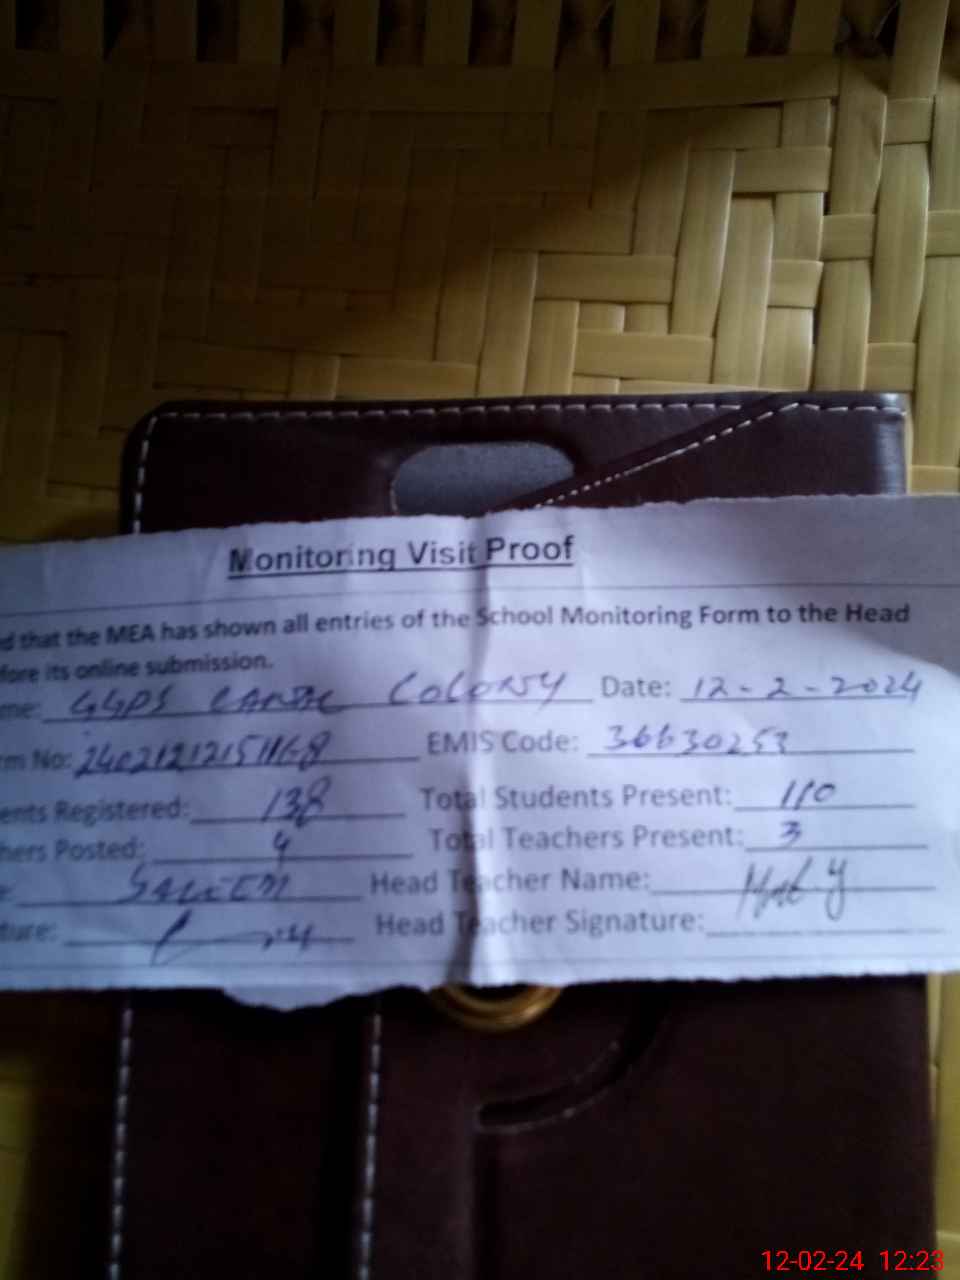 Monitoring Visit Proof
d that the MEA has shown all entries of the School Monitoring Form to the Head
fore its online submission.
me: GGPS CANAL COLONY Date: 12-2-2024
rm No: EMIS Code: 36630253
ents Registered: 138 Total Students Present: 110
hers Posted: 4 Total Teachers Present: 3
SALEEM Head Teacher Name:
ture: Head Teacher Signature:
12-02-24 12:23